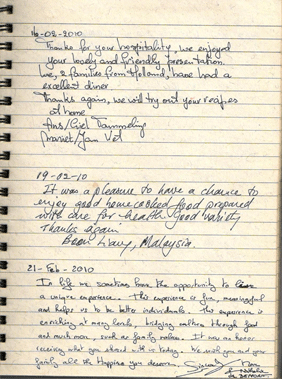 16-02-2010
Thanks for your hospitality, we enjoyed
your lovely and friendly presentation.
We, 2 families from Holland, have had a
excellent diner
Thanks again, we will try out your recipes
at home
Ans/Giel
/Jan Vet
19-02-10
It was a pleasure to have a chance to
enjoy good homecooked food prepared
with care for health. Good variety
Thanks again
Malaysia.
21-Feb-2010
In life we sometimes have the opportunity to have
a unique experience. This experience is fun, meaningful
and helps us to be better individuals. This experience is
enriching at many levels, bridging nations through food
and much more, such as family values. It was an honor
receiving what you shared with us today. We wish you and your
family all the Happiness you deserve. Sincerely